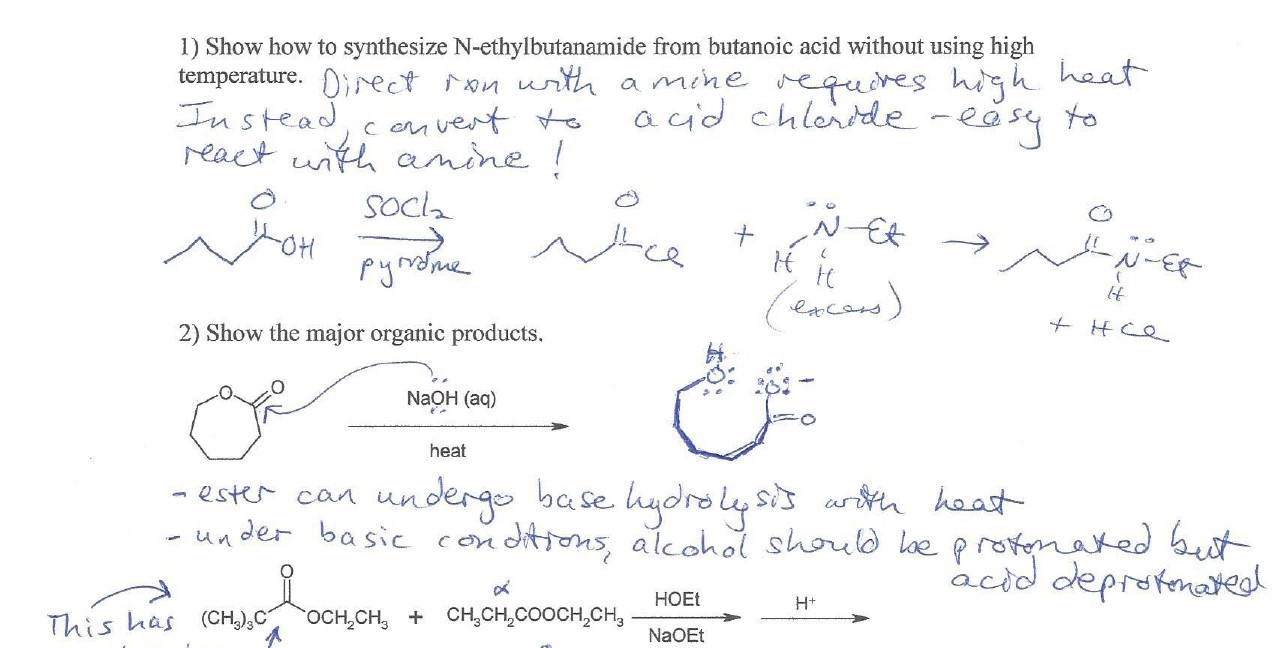 1) Show how to synthesize N-ethylbutanamide from butanoic acid without using high
temperature. Direct rxn with amine requires high heat
Instead, convert to acid chloride - easy to
react with amine!
O OH SOCl2 pyridine O Cl + N-Et H H (excess) → O N-Et H
+ HCl
2) Show the major organic products.
O O NaOH (aq) heat H O: :O: - O
- ester can undergo base hydrolysis with heat
- under basic conditions, alcohol should be protonated but
acid deprotonated
This has (CH3)3C O OCH2CH3 + α CH3CH2COOCH2CH3 HOEt NaOEt H+